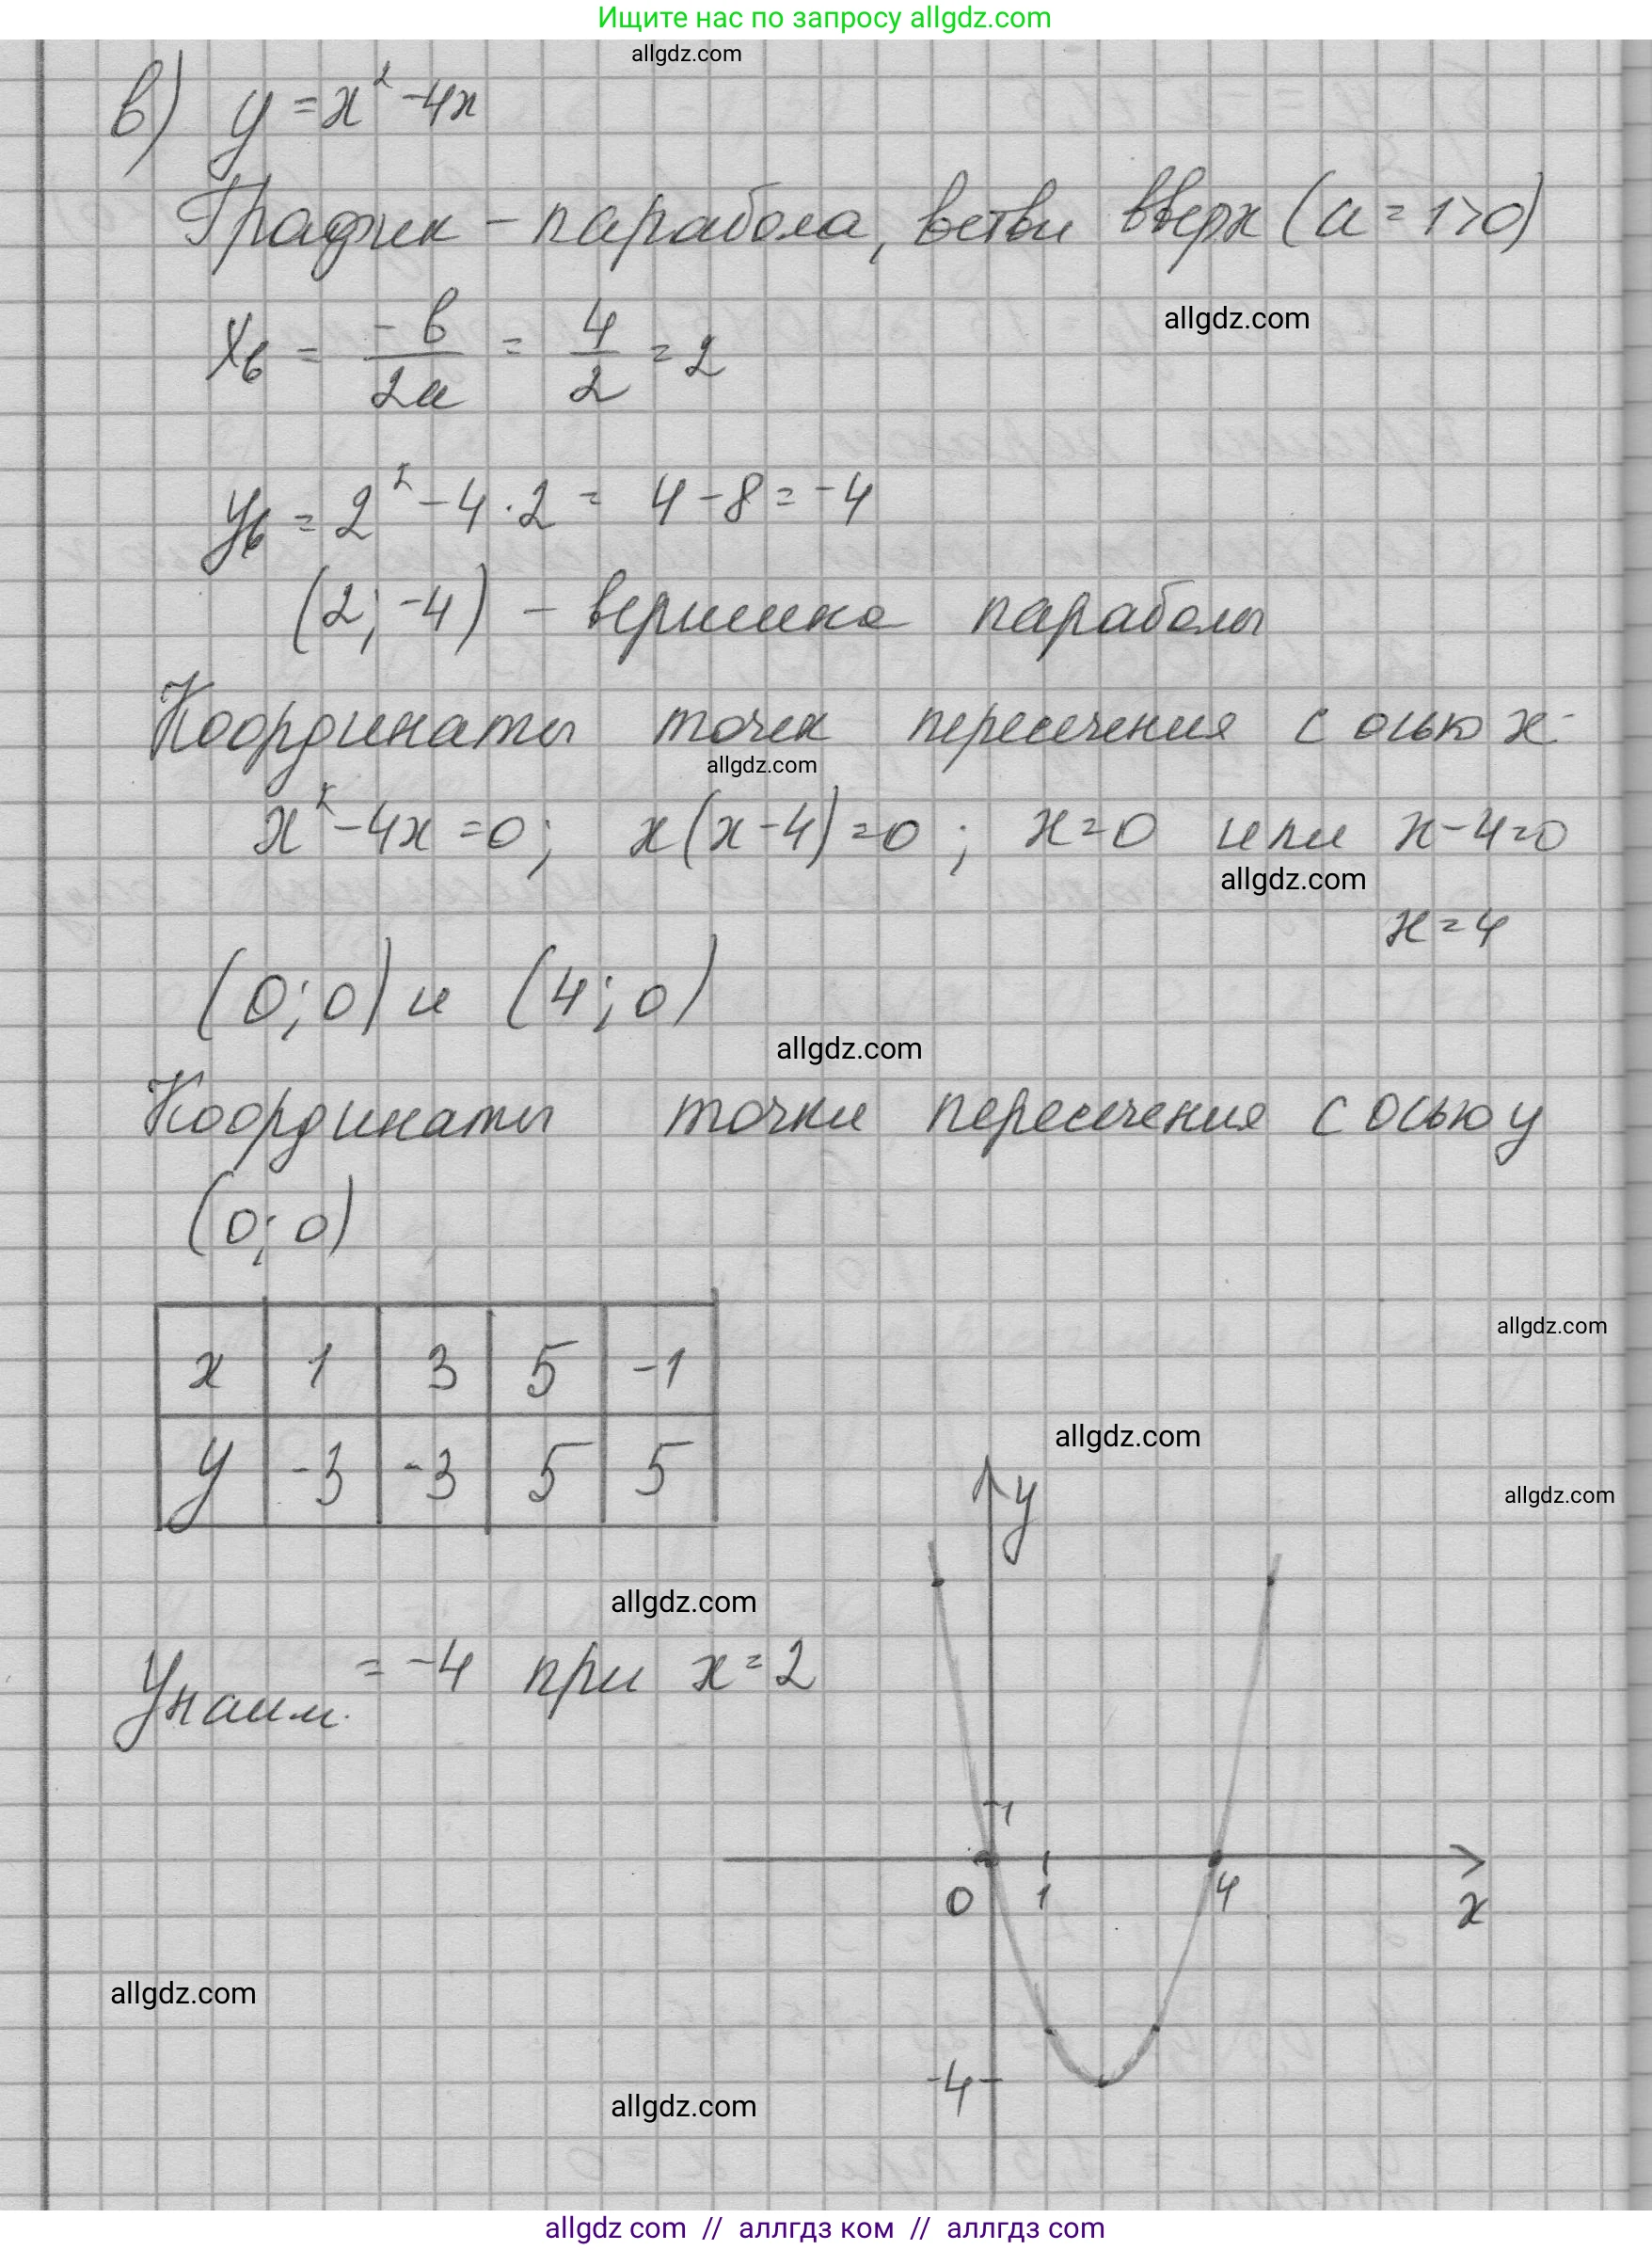 Ищите нас по запросу allgdz.com
allgdz.com
в) y = x² - 4x
График - парабола, ветви вверх (a = 1 > 0)
allgdz.com
xв = -в/2a = 4/2 = 2
yв = 2² - 4 · 2 = 4 - 8 = -4
(2; -4) - вершина параболы
Координаты точек пересечения с осью x:
allgdz.com
x² - 4x = 0; x(x - 4) = 0; x = 0 или x - 4 = 0
allgdz.com
x = 4
(0; 0) и (4; 0)
allgdz.com
Координаты точки пересечения с осью y
(0; 0)
allgdz.com
x 1 3 5 -1
y -3 -3 5 5
allgdz.com
allgdz.com
y
allgdz.com
yнаим. = -4 при x = 2
1
0 1 4 x
allgdz.com
-4
allgdz.com
allgdz com // аллгдз ком // аллгдз com